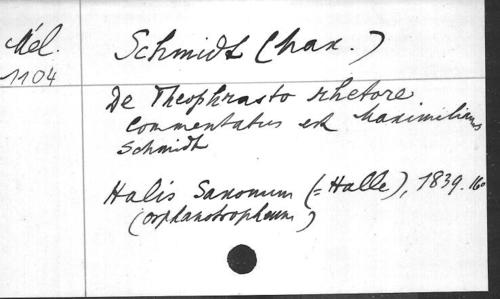 Mél.
1104
Schmidt (Max.)
De Theophrasto rhetore.
Commentatus est Maximilianus
Schmidt
Halis Saxonum (= Halle), 1839. 16°
(orphanotropheum)